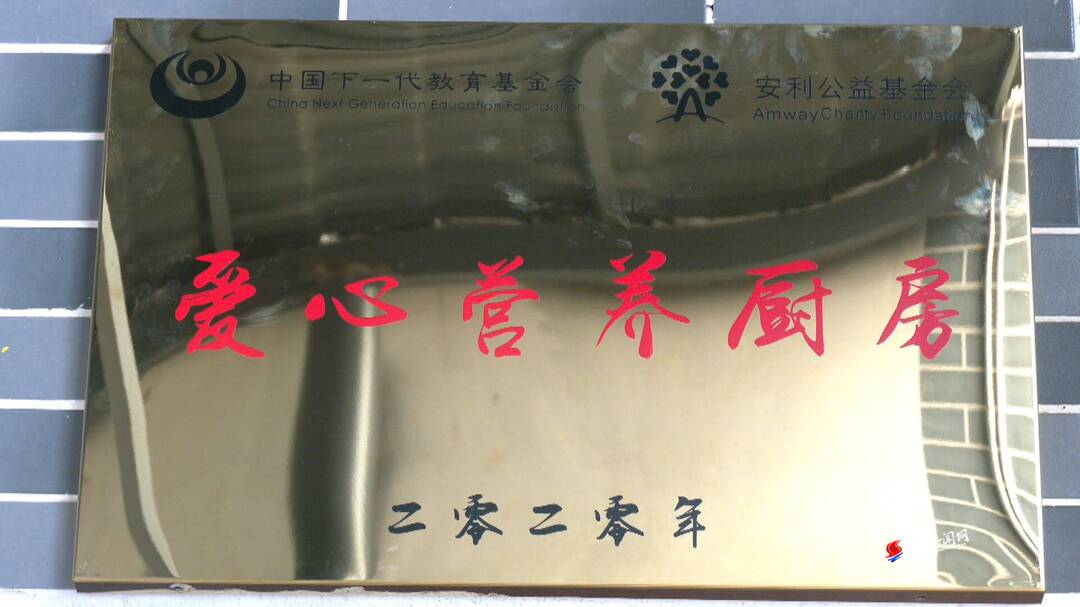 中国下一代教育基金会
China Next Generation Education Foundation
安利公益基金会
Amway Charity Foundation
爱心营养厨房
二零二零年
闻网